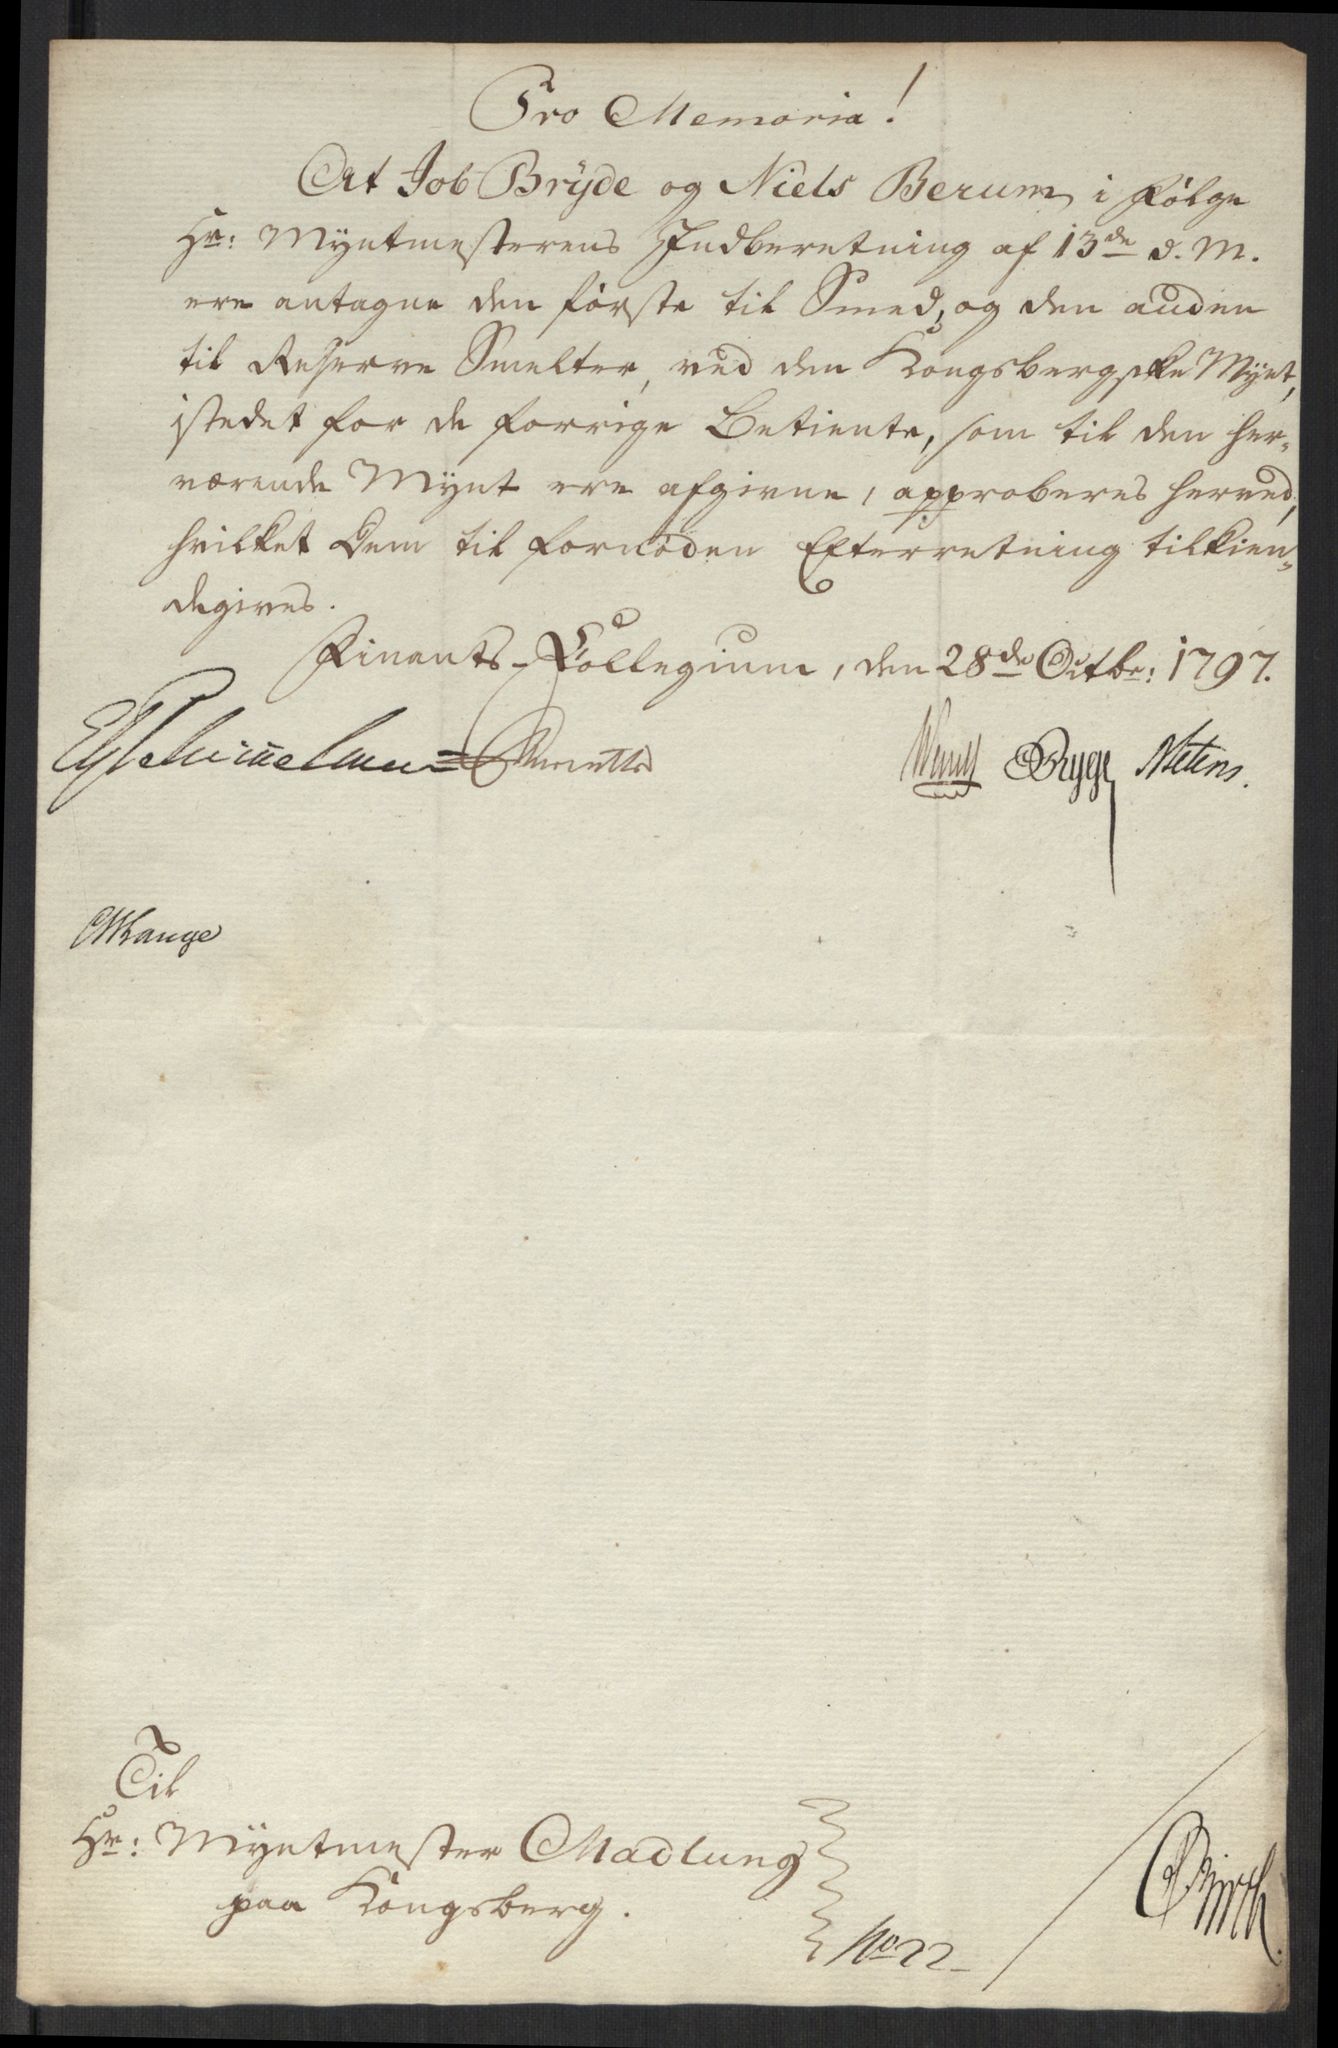 Pro Memoria!
At Job Brÿde og Niels Berum, i følge
Hr: Mÿntmesterens Indberetning af 13de d. M.
ere antagne den første til Smed, og den anden
til Reserve Smelter, ved den Kongsbergske Mÿnt,
istedet for de forrige Betiente, som til den her-
værende Mÿnt ere afgivne, approberes herved,
hvilket Dem til fornøden Efterretning tilkien-
degives.
Finants-Collegium, den 28de Octbr: 1797.
Schimmelmann Brygge
CWLange
Til
Hr: Mÿntmester Madlung
paa Kongsberg.
No 22